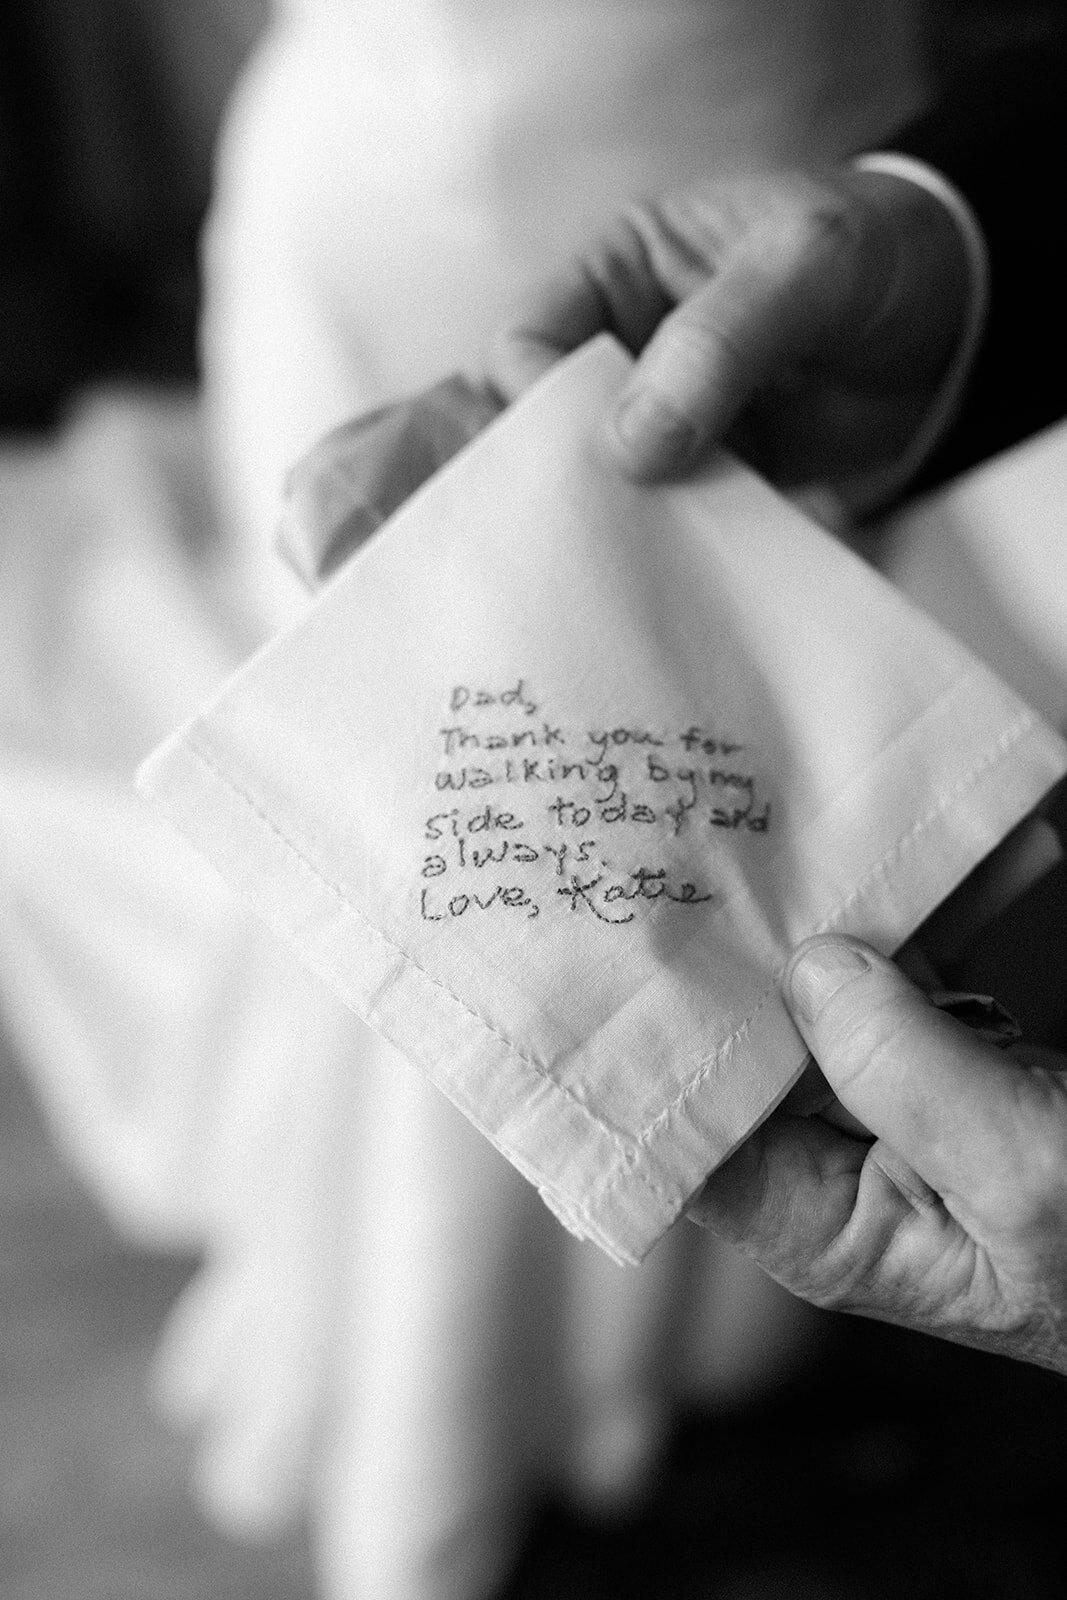 Dad,
Thank you for
walking by my
side today and
always.
Love, Katie